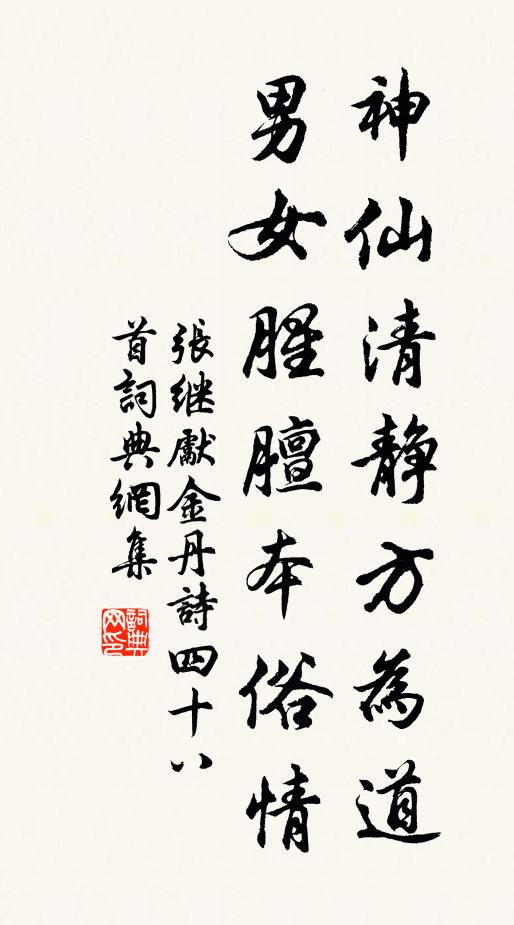 神仙清靜方為道
男女腥膻本俗情
張継獻金丹詩四十八
首詞典網集
詞典网印